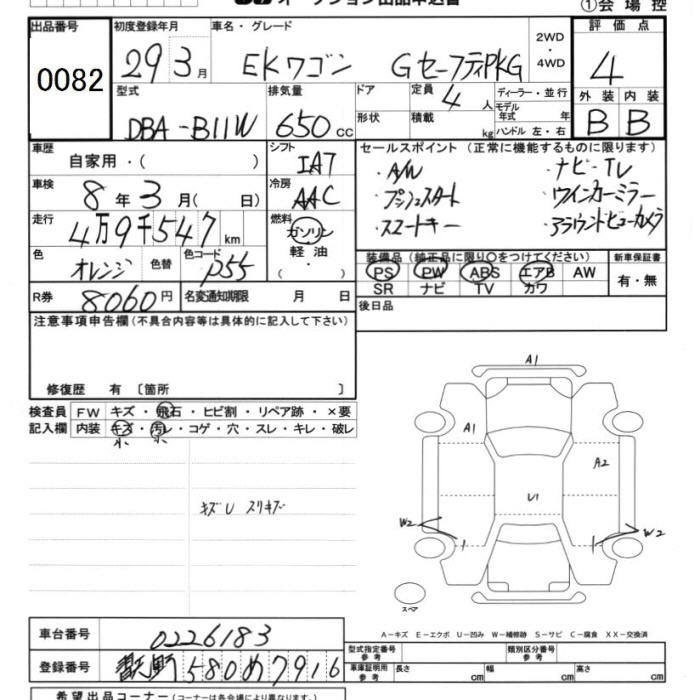 オークション出品申込書
①会場控
出品番号 初度登録年月 車名・グレード 2WD ・ 4WD 評価点
0082 29年3月 EKワゴン GセーフティPKG 4
型式 排気量 ドア 定員 4人 ディーラー・並行 外装 内装
DBA-B11W 650cc 形状 積載 kg モデル年式 年 ハンドル 左・右 B B
車歴 自家用・( ) シフト IAT セールスポイント(正常に機能するものに限ります)
車検 8年3月( 日) 冷房 AAC
・A/W ・ナビ・TV
・プッシュスタート ・ウインカーミラー
・スマートキー ・アラウンドビューカメラ
走行 4万9千547km 燃料 ガソリン・軽油・( )
色 オレンジ 色替 色コード P55
装備品(純正品に限り〇をつけてください) 新車保証書
PS PW ABS エアB AW 有・無
SR ナビ TV カワ
R券 8060円 名変通知期限 月 日 後日品
注意事項申告欄(不具合内容等は具体的に記入して下さい)
修復歴 有 〔箇所 〕
検査員記入欄 FW キズ・飛石・ヒビ割・リペア跡・×要
内装 キズ・汚レ・コゲ・穴・スレ・キレ・破レ
小 小
キズU スリキズ
A1
A1
A2
U1
W2
W2
スペア
A-キズ E-エクボ U-凹み W-補修跡 S-サビ C-腐食 XX-交換済
車台番号 0226183
登録番号 580め7916
型式指定番号 参考 類別区分番号 参考
車庫証明用 参考 長さ cm 幅 cm 高さ cm
希望出品コーナー(コーナーは各会場により異なります。)